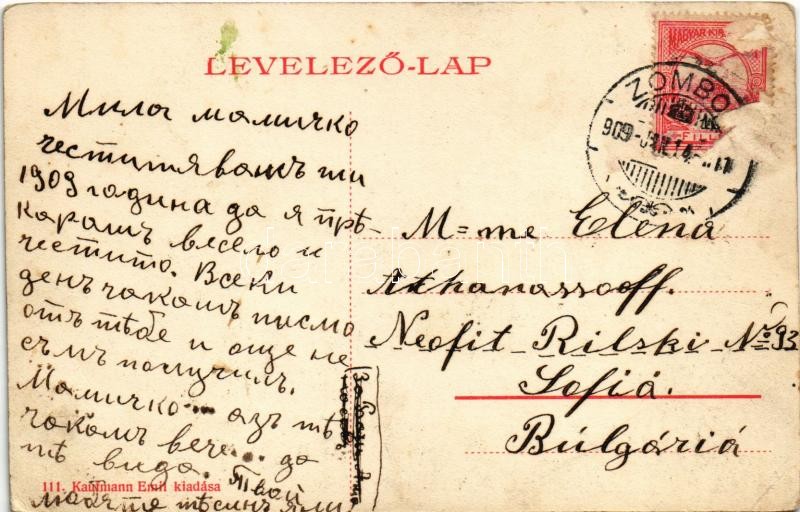 LEVELEZŐ-LAP
MAGYAR KIR.
ZOMBO
909
Мила мамичко
честитявамъ ти
1909 година да я прѣ-
карашъ весело и
честито. Всеки
денъ чакамъ писмо
отъ тѣбе и още не
съмъ получилъ.
Мамичко азъ тѣ
чакамъ вече да
тѣ вида. Твой
M=me Elena
Athanassooff.
Neofit Rilski № 93
Sofiá.
Búlgáriá
111. Kaufmann Emil kiadása